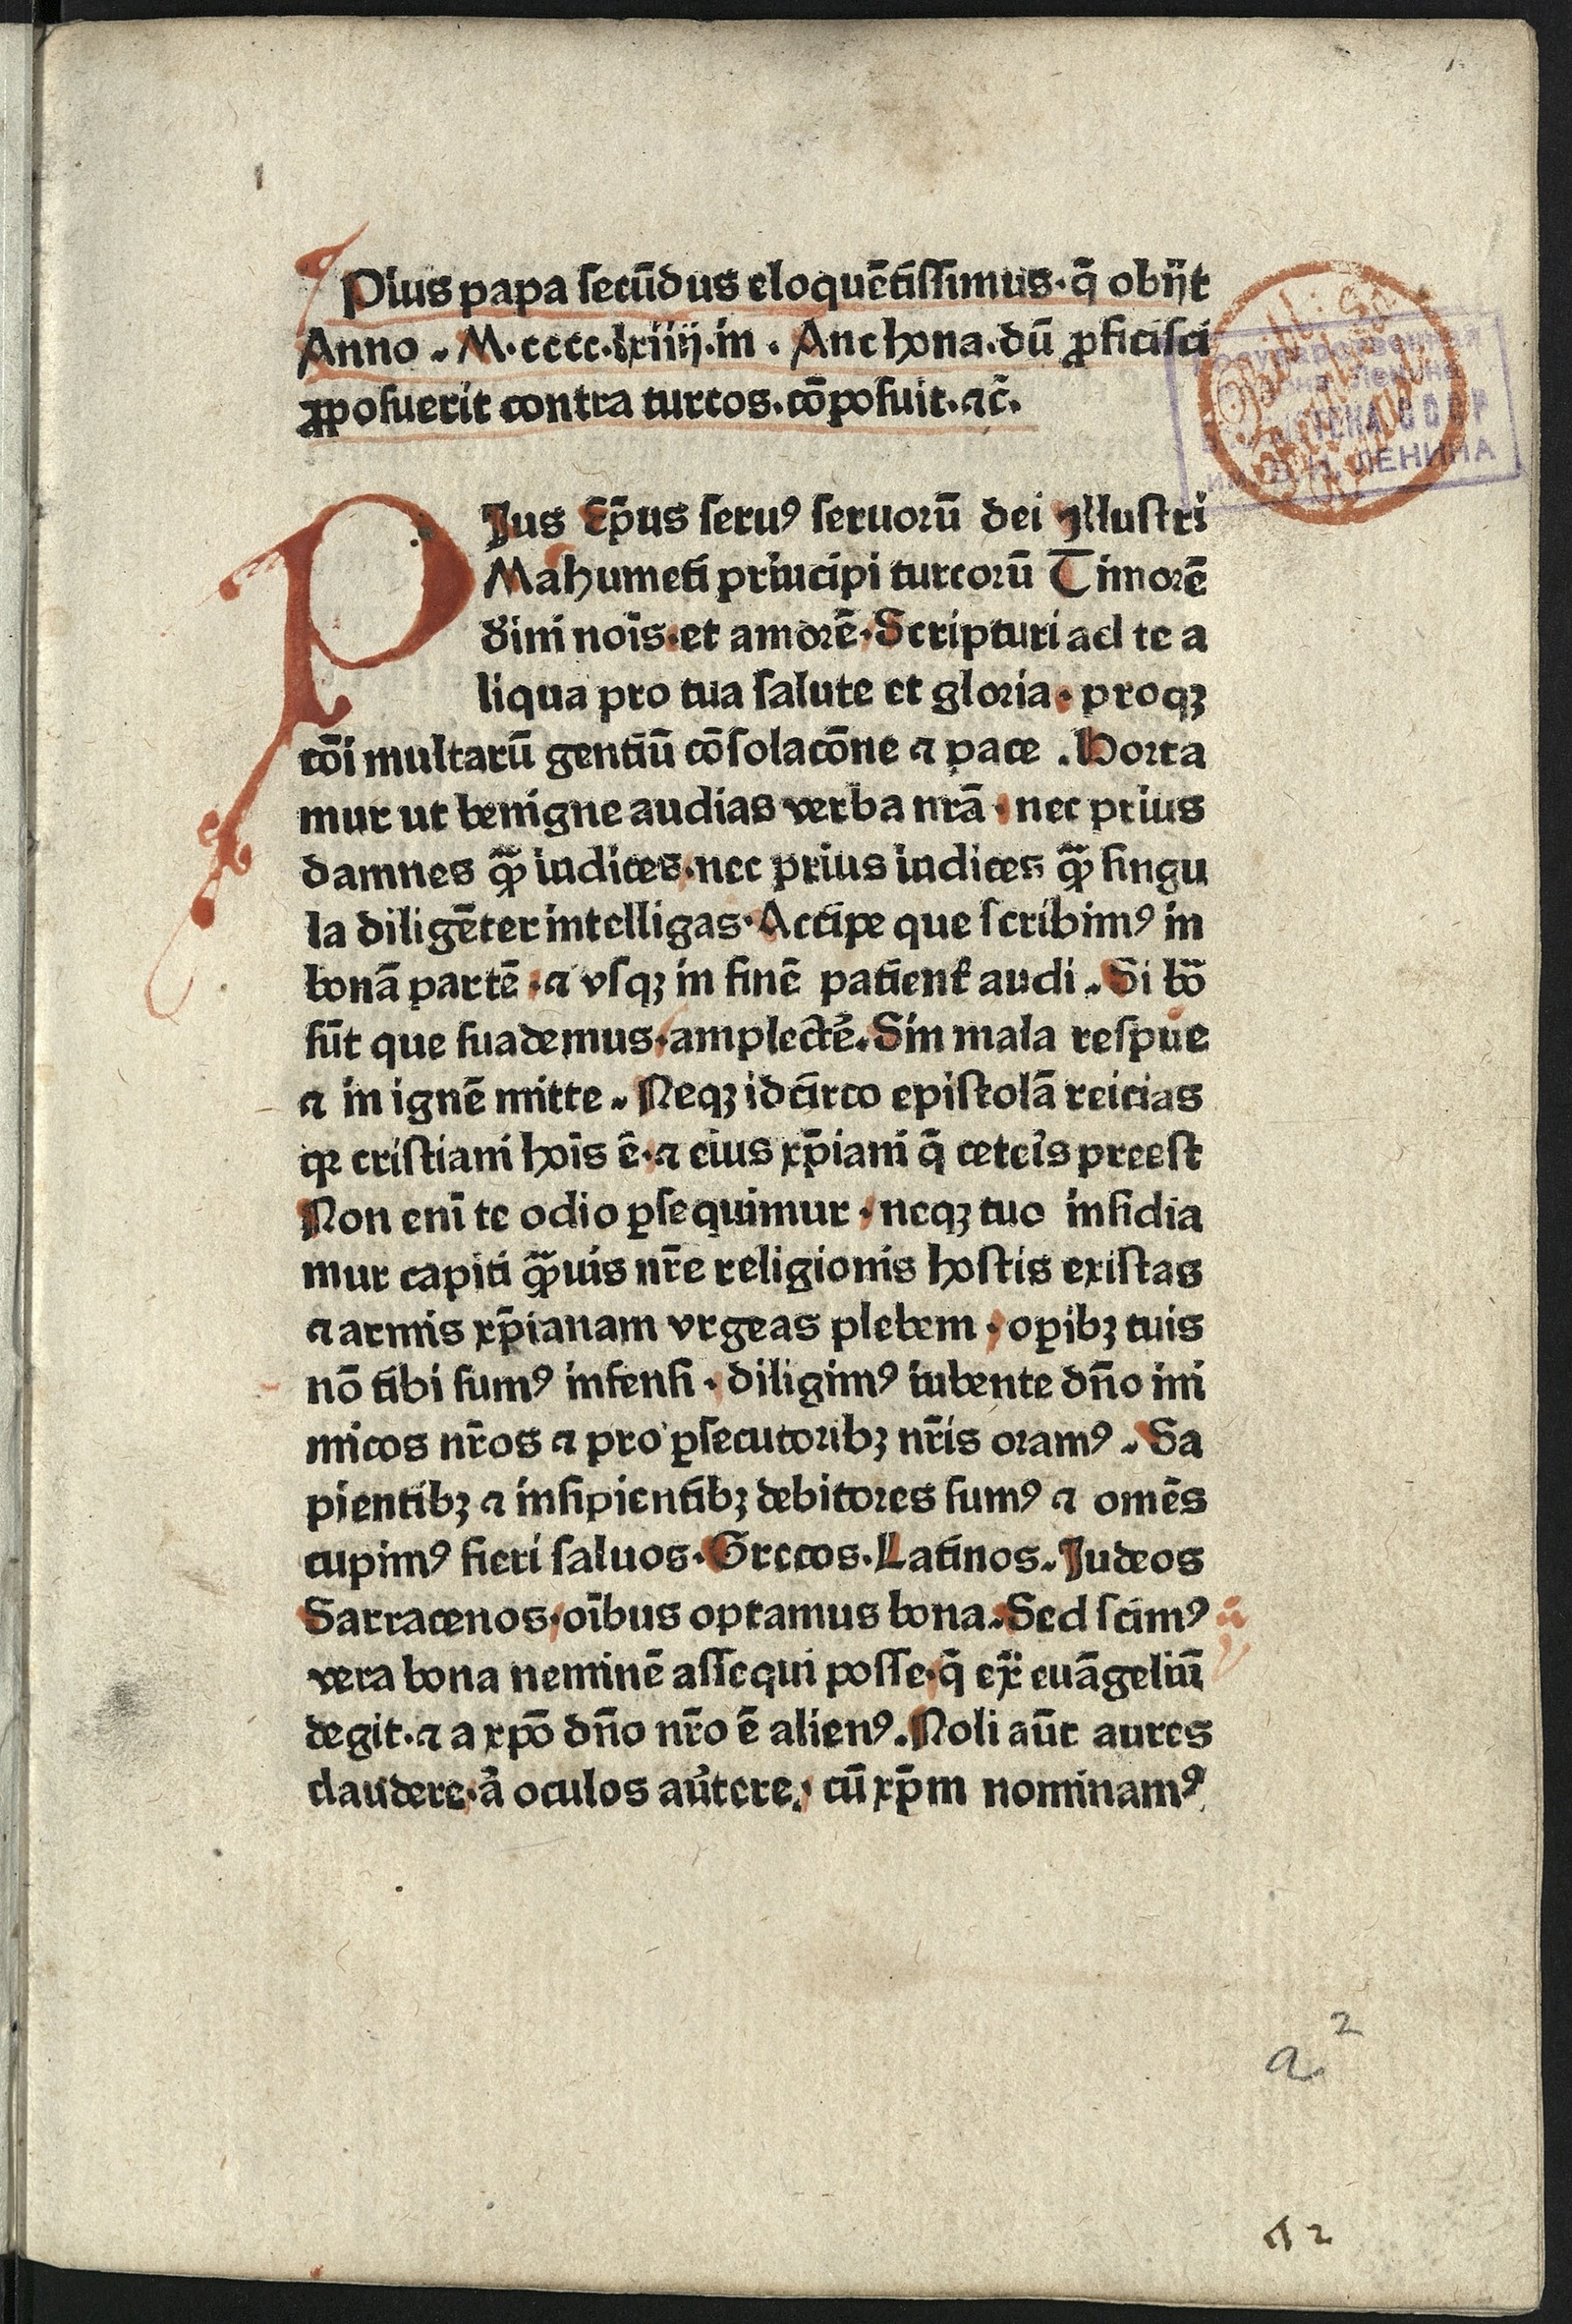 Pius papa ſecūdus eloquētiſſimus·q̄ obijt
Anno . M·cccc·lxiiij·in . Anchona·dū ꝓficiſci
ꝓpoſuerit contra turcos·cōpoſuit·⁊c̄.
PJus Ep̄us ſeruꝰ ſeruoꝝ dei Jlluſtri
Mahumeti prīncipi turcoꝛū Timoꝛē
diuīni noīs·et amoꝛē·Scripturi ad te a
liqua pro tua ſalute et gloꝛia·proqꝫ
cōi multarū gentiū cōſolacōne ⁊ pace . Hoꝛta
mur ut benigne audias verba nr̄a · nec prius
damnes qͣ̄ꝫ iudices·nec prius iudices qͣ̄ꝫ ſingu
la diligēter intelligas·Accipe que ſcribimꝰ in
bonā partē ·⁊ vſqꝫ in finē patient̄ audi . Si bōa
ſūt que ſuademus·amplectē̄.Sin mala reſpue
⁊ in ignē mitte . Neqꝫ idcirco epiſtolā reicias
qꝛ criſtiani hoīs ē·⁊ eius xp̄iani q̄ ceteis̄ preeſt
Non enī te odio ꝑſequimur · neqꝫ tuo inſidia
mur capiti qͣ̄ꝫuis nr̄e religionis hoſtis exiſtas
⁊ armis xp̄ianam vrgeas plebem · oꝑibꝫ tuis
nō tibi ſumꝰ infenſi · diligimꝰ iubente dn̄o ini
micos nr̄os ⁊ pro ꝑſecutoribꝫ nr̄is oꝛamꝰ . Sa
pientibꝫ ⁊ inſipientibꝫ debitoꝛes ſumꝰ ⁊ omēs
cupimꝰ fieri ſaluos·Grecos·Latinos.Judeos
Sarracenos·oībus optamus bona.Sed ſcimꝰ
vera bona neminē aſſequi poſſe·q̄ exͣ̄ euāgeliū
degit·⁊ a xp̄o dn̄o nr̄o ē alienꝰ.Noli aūt aures
claudere·ā oculos aūtere· cū xp̄m nominamꝰ
БИБЛИОТЕКА СССР
ЛЕНИНА
a 2
a 2